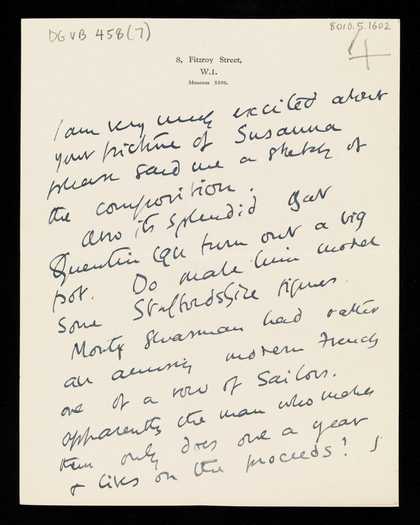 DGVB 458(7)
8010.5.1602
4
8, Fitzroy Street,
W.1.
I am very much excited about
your picture of Susanna
please send me a sketch of
the composition.
Also its splendid that
Quentin can turn out a big
pot. Do make him model
some Staffordshire figures.
Monty Shearman had rather
an amusing modern French
one of a row of Sailors.
apparently the man who makes
them only does one a year
& lives on the proceeds! I